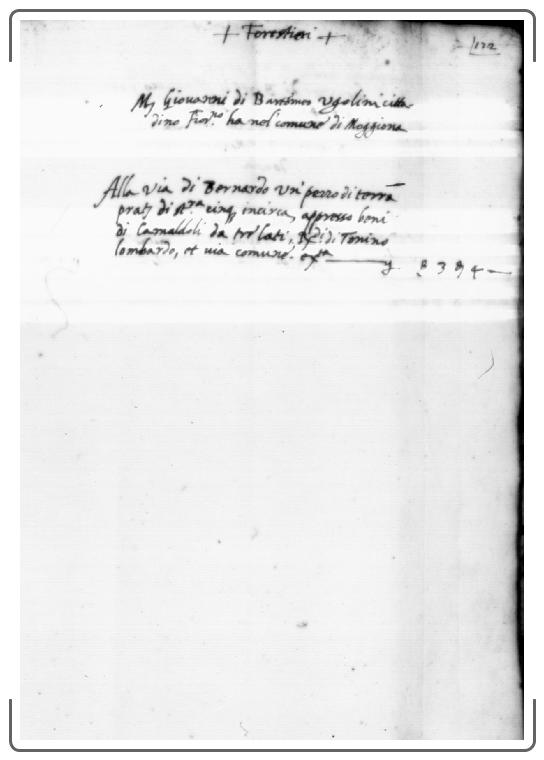 + Forestieri +
122
M Giovanni di Bartmeo Ugolini citta-
dino Fior.no ha nel comune di Moggiona
Alla via di Bernardo un pezzo di terra
prat di cinq incirca, appresso beni
di Camaldoli da tre lati, di Tonino
lombardo, et via comune.